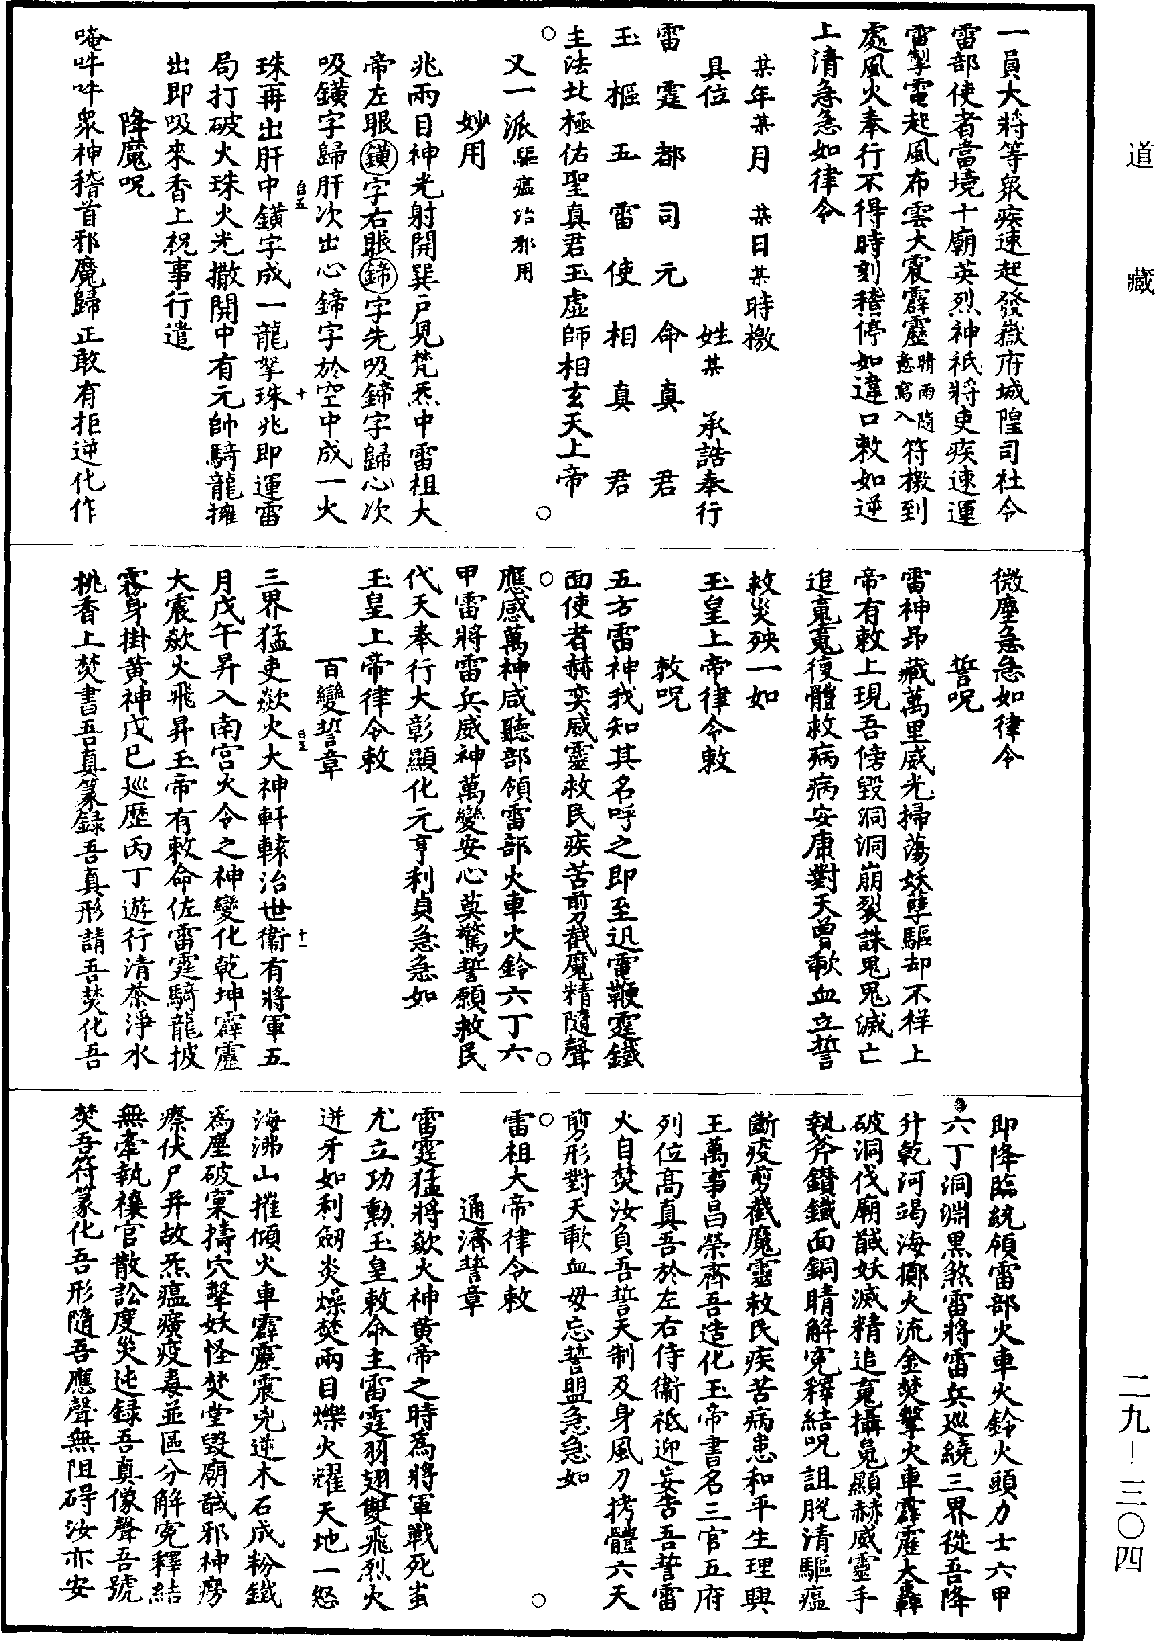 道藏
一員大將等衆疾速起發嶽府城隍司社令
雷部使者當境十廟英烈神祇將吏疾速運
雷掣電起風布雲大震霹靂晴雨隨意寫入符檄到
處風火奉行不得時刻稽停如違口敕如逆
上清急急如律令
某年某月 某日某時檄
具位 姓某 承誥奉行
雷霆都司元命真君
玉樞五雷使相真君
主法北極佑聖真君玉虛師相玄天上帝
又一派驅瘟治邪用
妙用
兆兩目神光射開巽戶見梵炁中雷祖大
帝左眼鐄字右眼𨧱字先吸𨧱字歸心次
吸鐄字歸肝次出心𨧱字於空中成一火
珠再出肝中鐄字成一龍拏珠兆即運雷
局打破火珠火光撒開中有元帥騎龍擁
出即吸來香上祝事行遣
降魔呪
唵吽吽衆神稽首邪魔歸正敢有拒逆化作
微塵急急如律令
誓呪
雷神昂藏萬里威光掃蕩妖孽驅却不祥上
帝有敕上現吾傍毀洞洞崩裂誅鬼鬼滅亡
追䰟䰟復體救病病安康對天曾歃血立誓
救災殃一如
玉皇上帝律令敕
敕呪
五方雷神我知其名呼之即至迅電鞭霆鐵
面使者赫奕威靈救民疾苦剪截魔精隨聲
應感萬神咸聽部領雷部火車火鈴六丁六
甲雷將雷兵威神萬變安心莫驚誓願救民
代天奉行大彰顯化元亨利貞急急如
玉皇上帝律令敕
百變誓章
三界猛吏歘火大神軒轅治世衞有將軍五
月戊午昇入南宫火令之神變化乾坤霹靂
大震歘火飛昇玉帝有敕命佐雷霆騎龍披
霧身掛黄神戊巳巡歷丙丁遊行清茶淨水
桃香上焚書吾真篆録吾真形請吾焚化吾
即降臨統領雷部火車火鈴火頭力士六甲
六丁洞淵黑煞雷將雷兵巡繞三界從吾降
升乾河竭海擲火流金焚擊火車霹靂大轟
破洞伐廟馘妖滅精追䰟攝䰟顯赫威靈手
執斧鑚鐵面銅睛解寃釋結呪詛脱清驅瘟
斷疫剪截魔靈救民疾苦病患和平生理興
王萬事昌榮齊吾造化玉帝書名三官五府
列位高真吾於左右侍衞祗迎妄告吾誓雷
火自焚汝負吾誓天制及身風刀拷體六天
剪形對天歃血毋忘誓盟急急如
雷祖大帝律令敕
通濟誓章
雷霆猛將歘火神黄帝之時為將軍戰死蚩
尤立功勳玉皇敕命主雷霆羽翅雙飛烈火
迸牙如利劒炎燥焚兩目爍火耀天地一怒
海沸山摧傾火車霹靂震兇逆木石成粉鐵
為塵破窠擣穴擊妖怪焚堂毀廟馘邪神癆
瘵伏尸并故炁瘟癀疫毒並區分解寃釋結
無牽執禳官散訟度災迍録吾真像聲吾號
焚吾符篆化吾形隨吾應聲無阻碍汝亦安
二九-三〇四